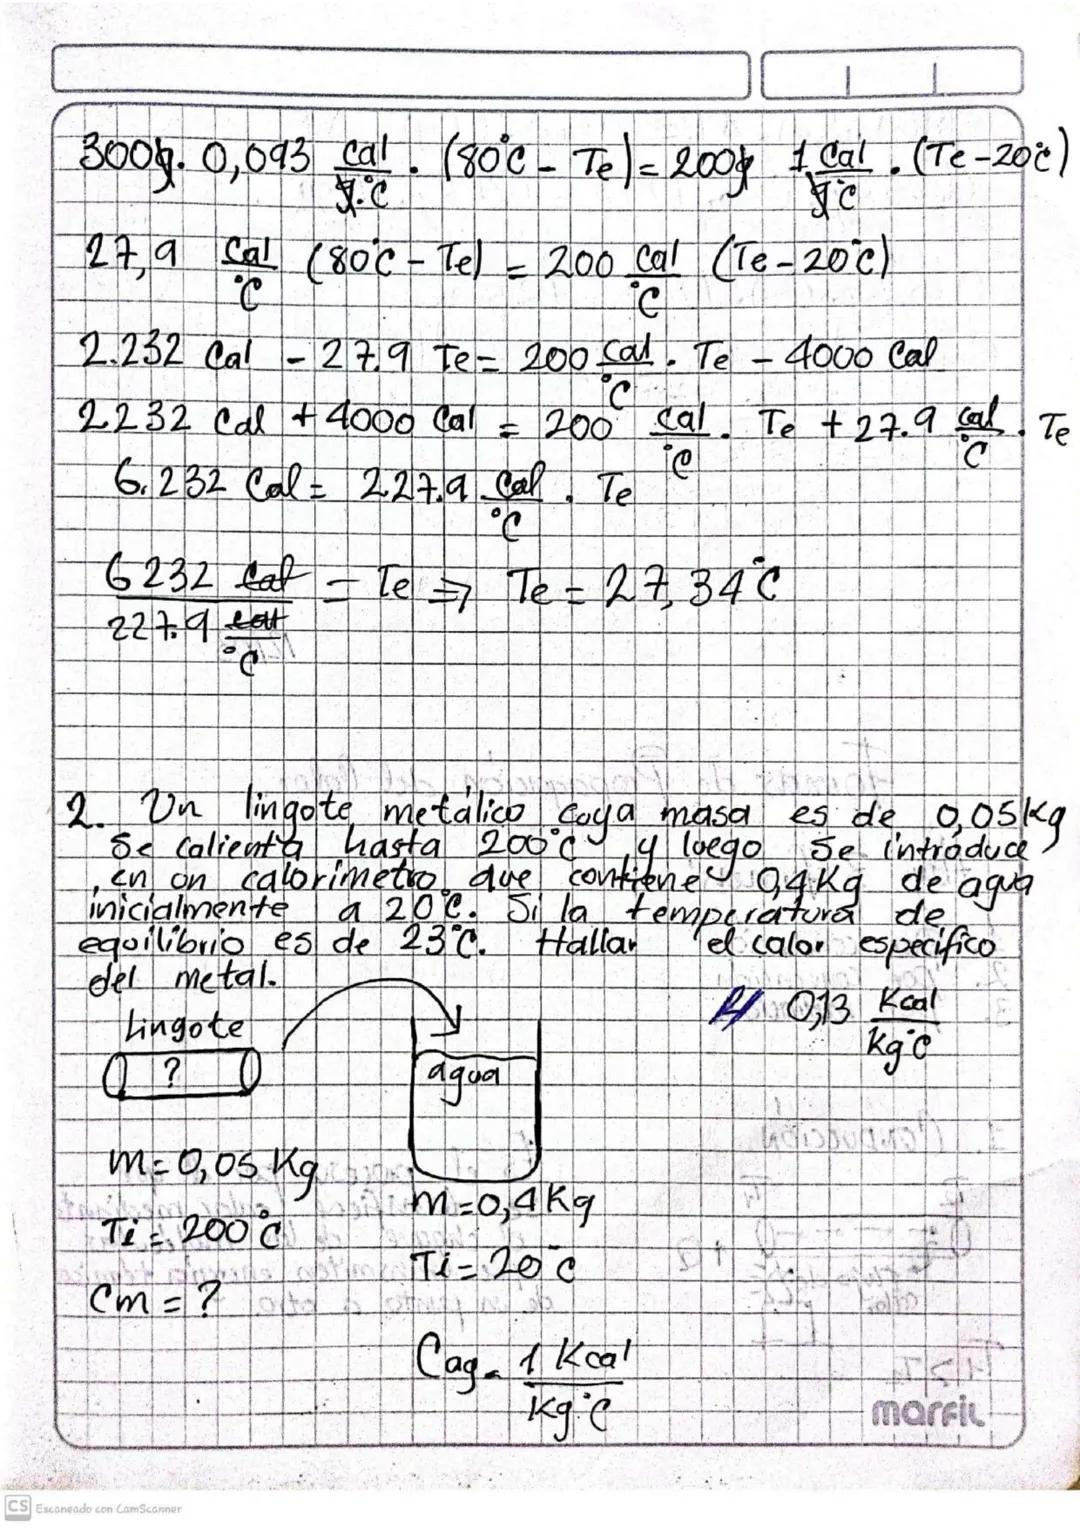 300g. 0,093 cal/g.°C . (80°C - Te) = 200g 1 Cal/g°C . (Te-20°c)
27,9 Cal/°C (80°C - Te) = 200 Cal/°C (Te-20°c)
2.232 Cal - 27.9 Te = 200 Cal/°C . Te - 4000 Cal
2232 Cal + 4000 Cal = 200 cal/°C . Te + 27.9 cal/°C . Te
6.232 Cal = 227.9 Cal/°C . Te
6232 cal / 227.9 cal/°C = Te ⇒ Te = 27,34°C
2. Un lingote metálico cuya masa es de 0,05Kg
Se calienta hasta 200°C y luego Se introduce
, en un calorimetro que contiene 0,4Kg de agua
inicialmente a 20°C. Si la temperatura de
equilibrio es de 23°C. Hallar el calor especifico
del metal.
R/ 0,13 Kcal/kg°C
Lingote
?
agua
m=0,05 Kg
m=0,4Kg
Ti = 200°C
Ti = 20°C
Cm = ?
Cag = 1 Kcal/Kg°C
marfil
CS Escaneado con CamScanner